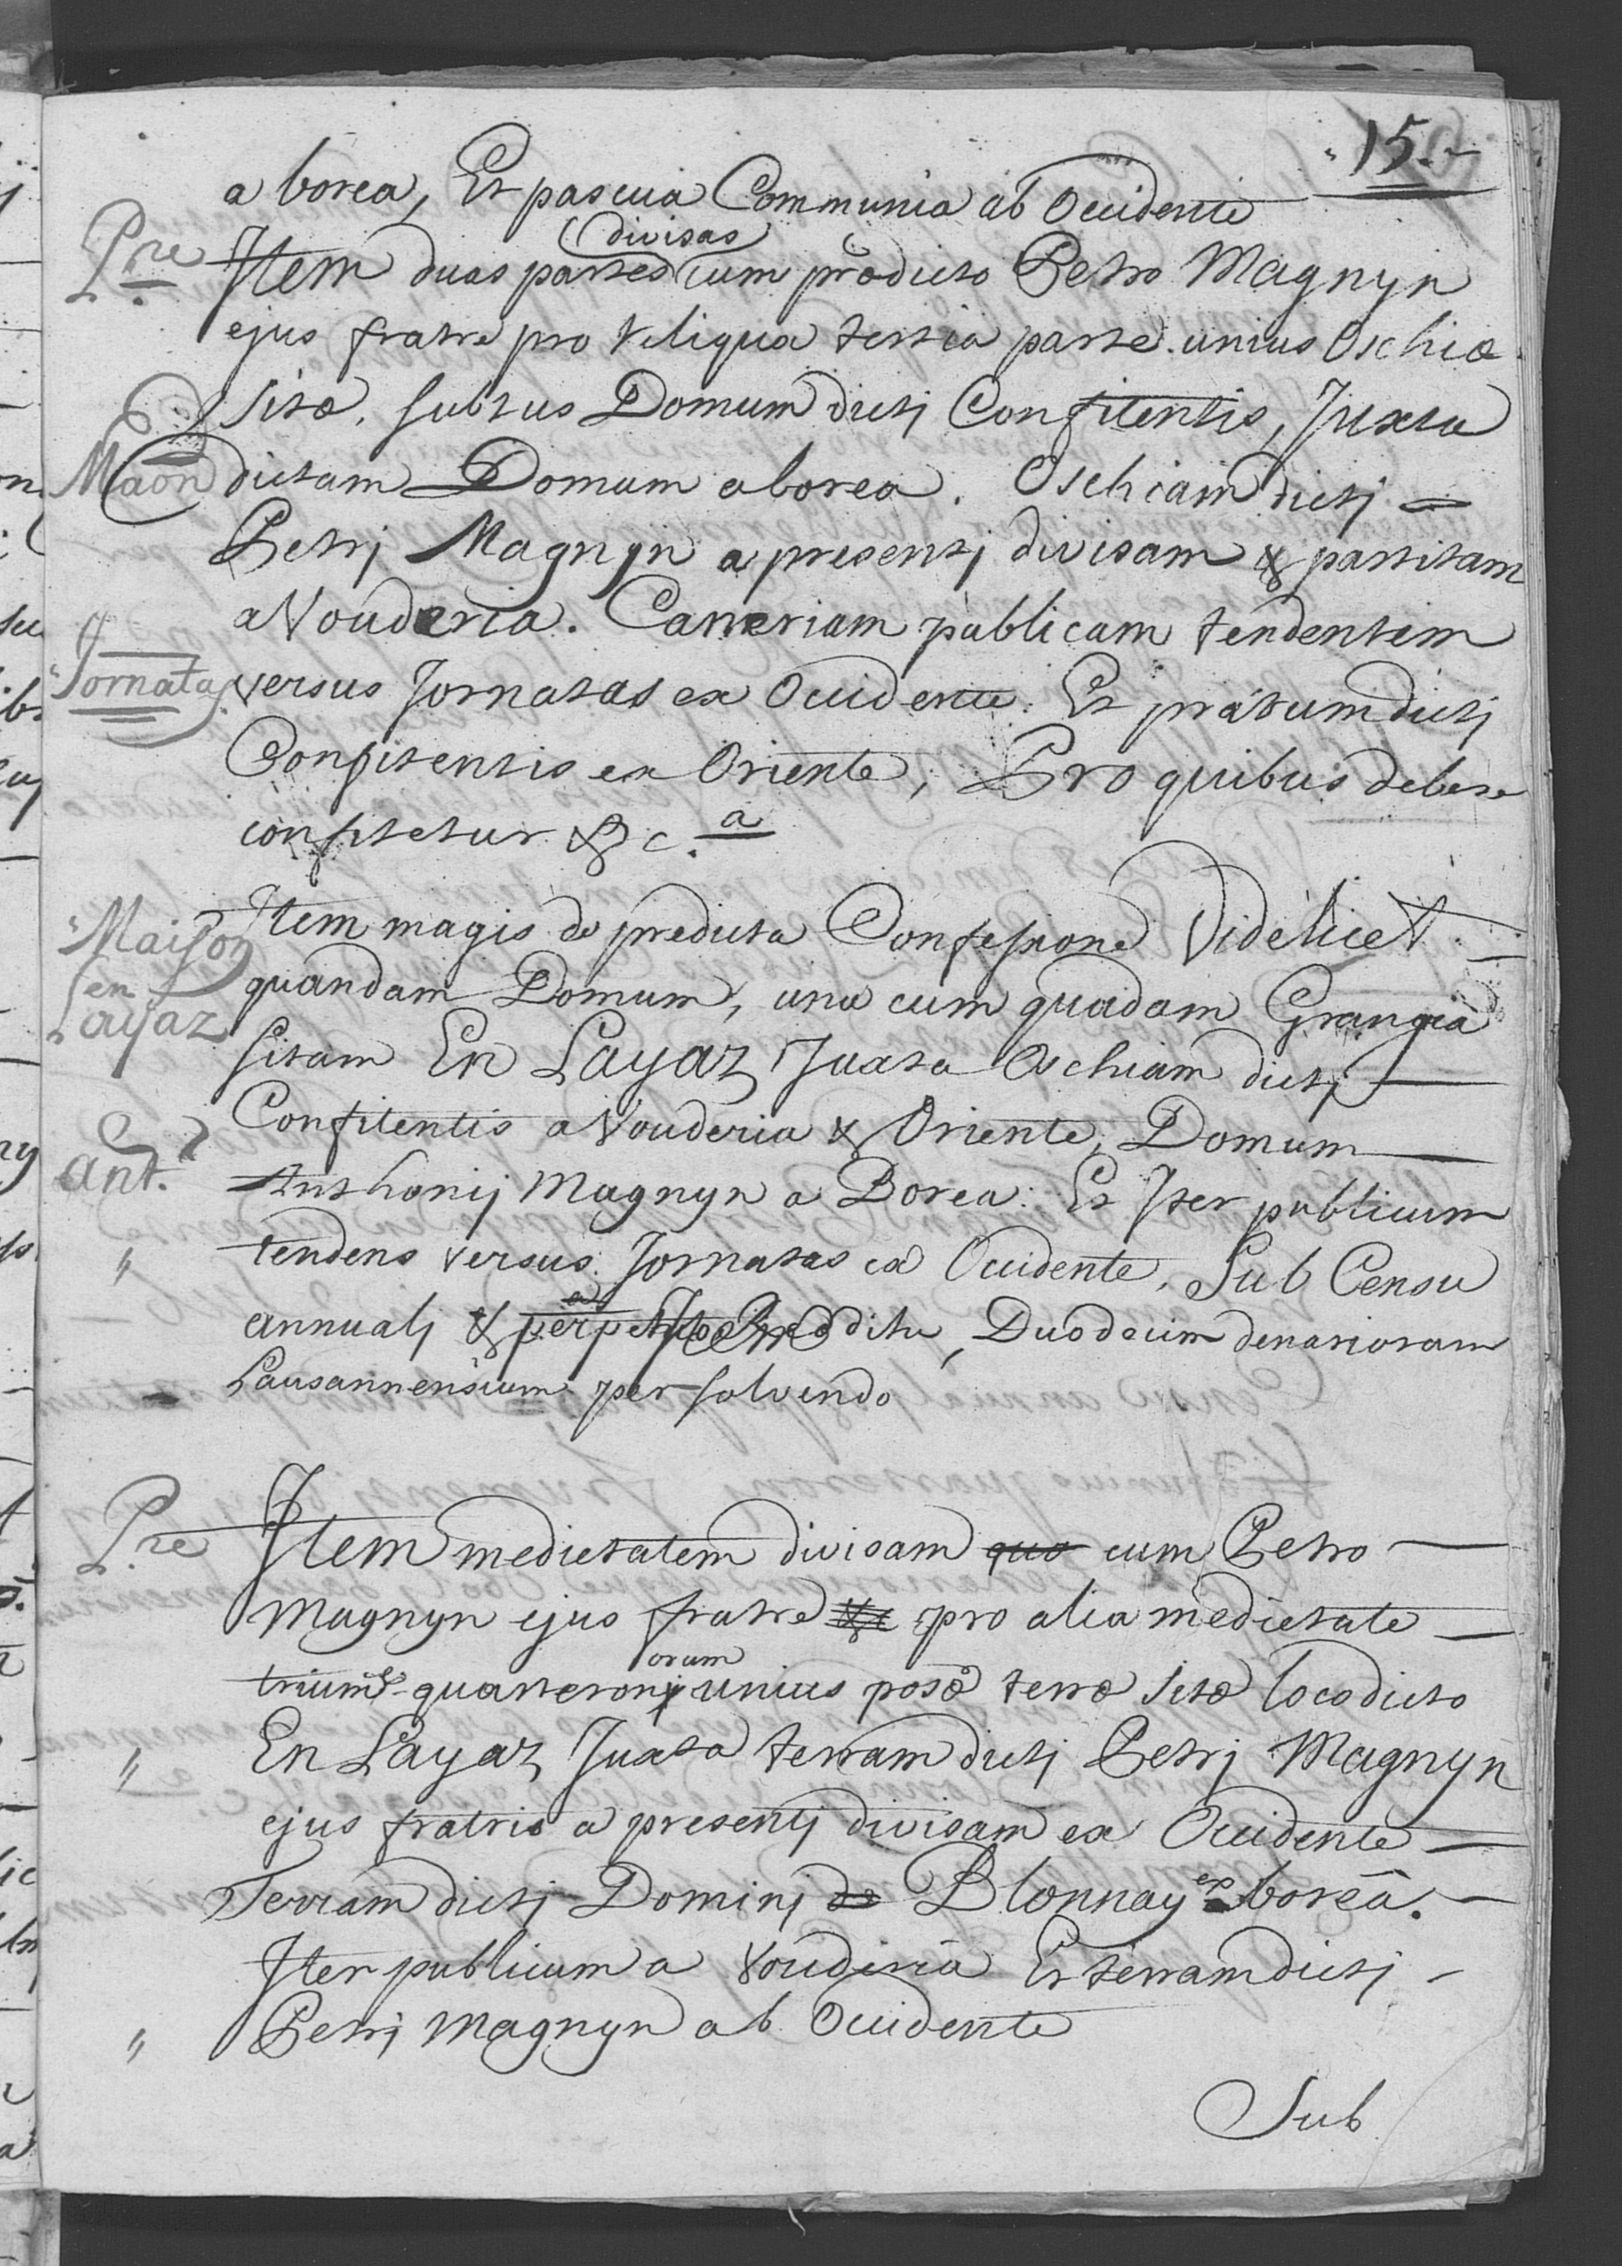 15.
a borea, Et pascua Communia ab Occidente
Pre
divisas
Item duas partes cum prodicto Petro Magnyn
ejus fratre pro reliqua tertia parte unius Oschiæ
sitæ. subtus Domum dictj Confitentis, Juxta
Et
Maōn
dictam Domum a borea. Oschiam dictj
Petrj Magnyn a presentj divisam & partitam
a Vouderia. Carreriam publicam tendentem
Jornatas
versus Jornatas ex Occidente. Et pratum dictj
Confitentis ex Oriente, Pro quibus debere
confitetur &c.a
Maison
en
Layaz
Item magis de predicta Confessione Videlicet
quandam Domum, una cum quadam Grangia
sitam En Layaz Juxta Oschiam dictj
Confitentis a Vouderia & Oriente, Domum
Et
ant.
Anthonij Magnyn a Borea. Et Iter publicum
" tendens versus Jornatas ex Occidente. Sub Censu
annualj & perpetuo Redditu, Duodecim denariorum
Lausannensium persolvendo
Pre
Item medietatem divisam quo cum Petro
Magnyn ejus fratre &c pro alia medietate
orum
trium quarteronj unius posæ terræ sitæ loco dicto
" En Layaz Juxta terram dictj Petrj Magnyn
ejus fratris a presentj divisam ex Occidente
Terram dictj Dominj de Blonnay ex borea.
Iter publicum a Vouderia Et terram dictj
" Petrj Magnyn ab Occidente
Sub